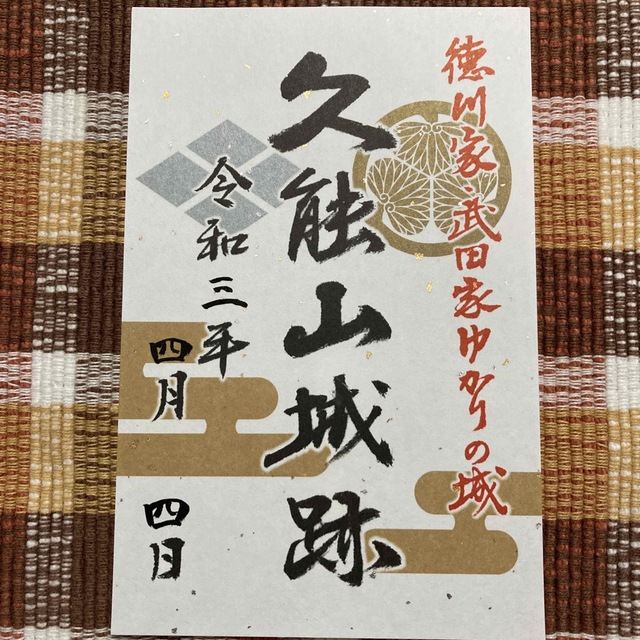 徳川家・武田家ゆかりの城
久能山城跡
令和三年
四月 四日